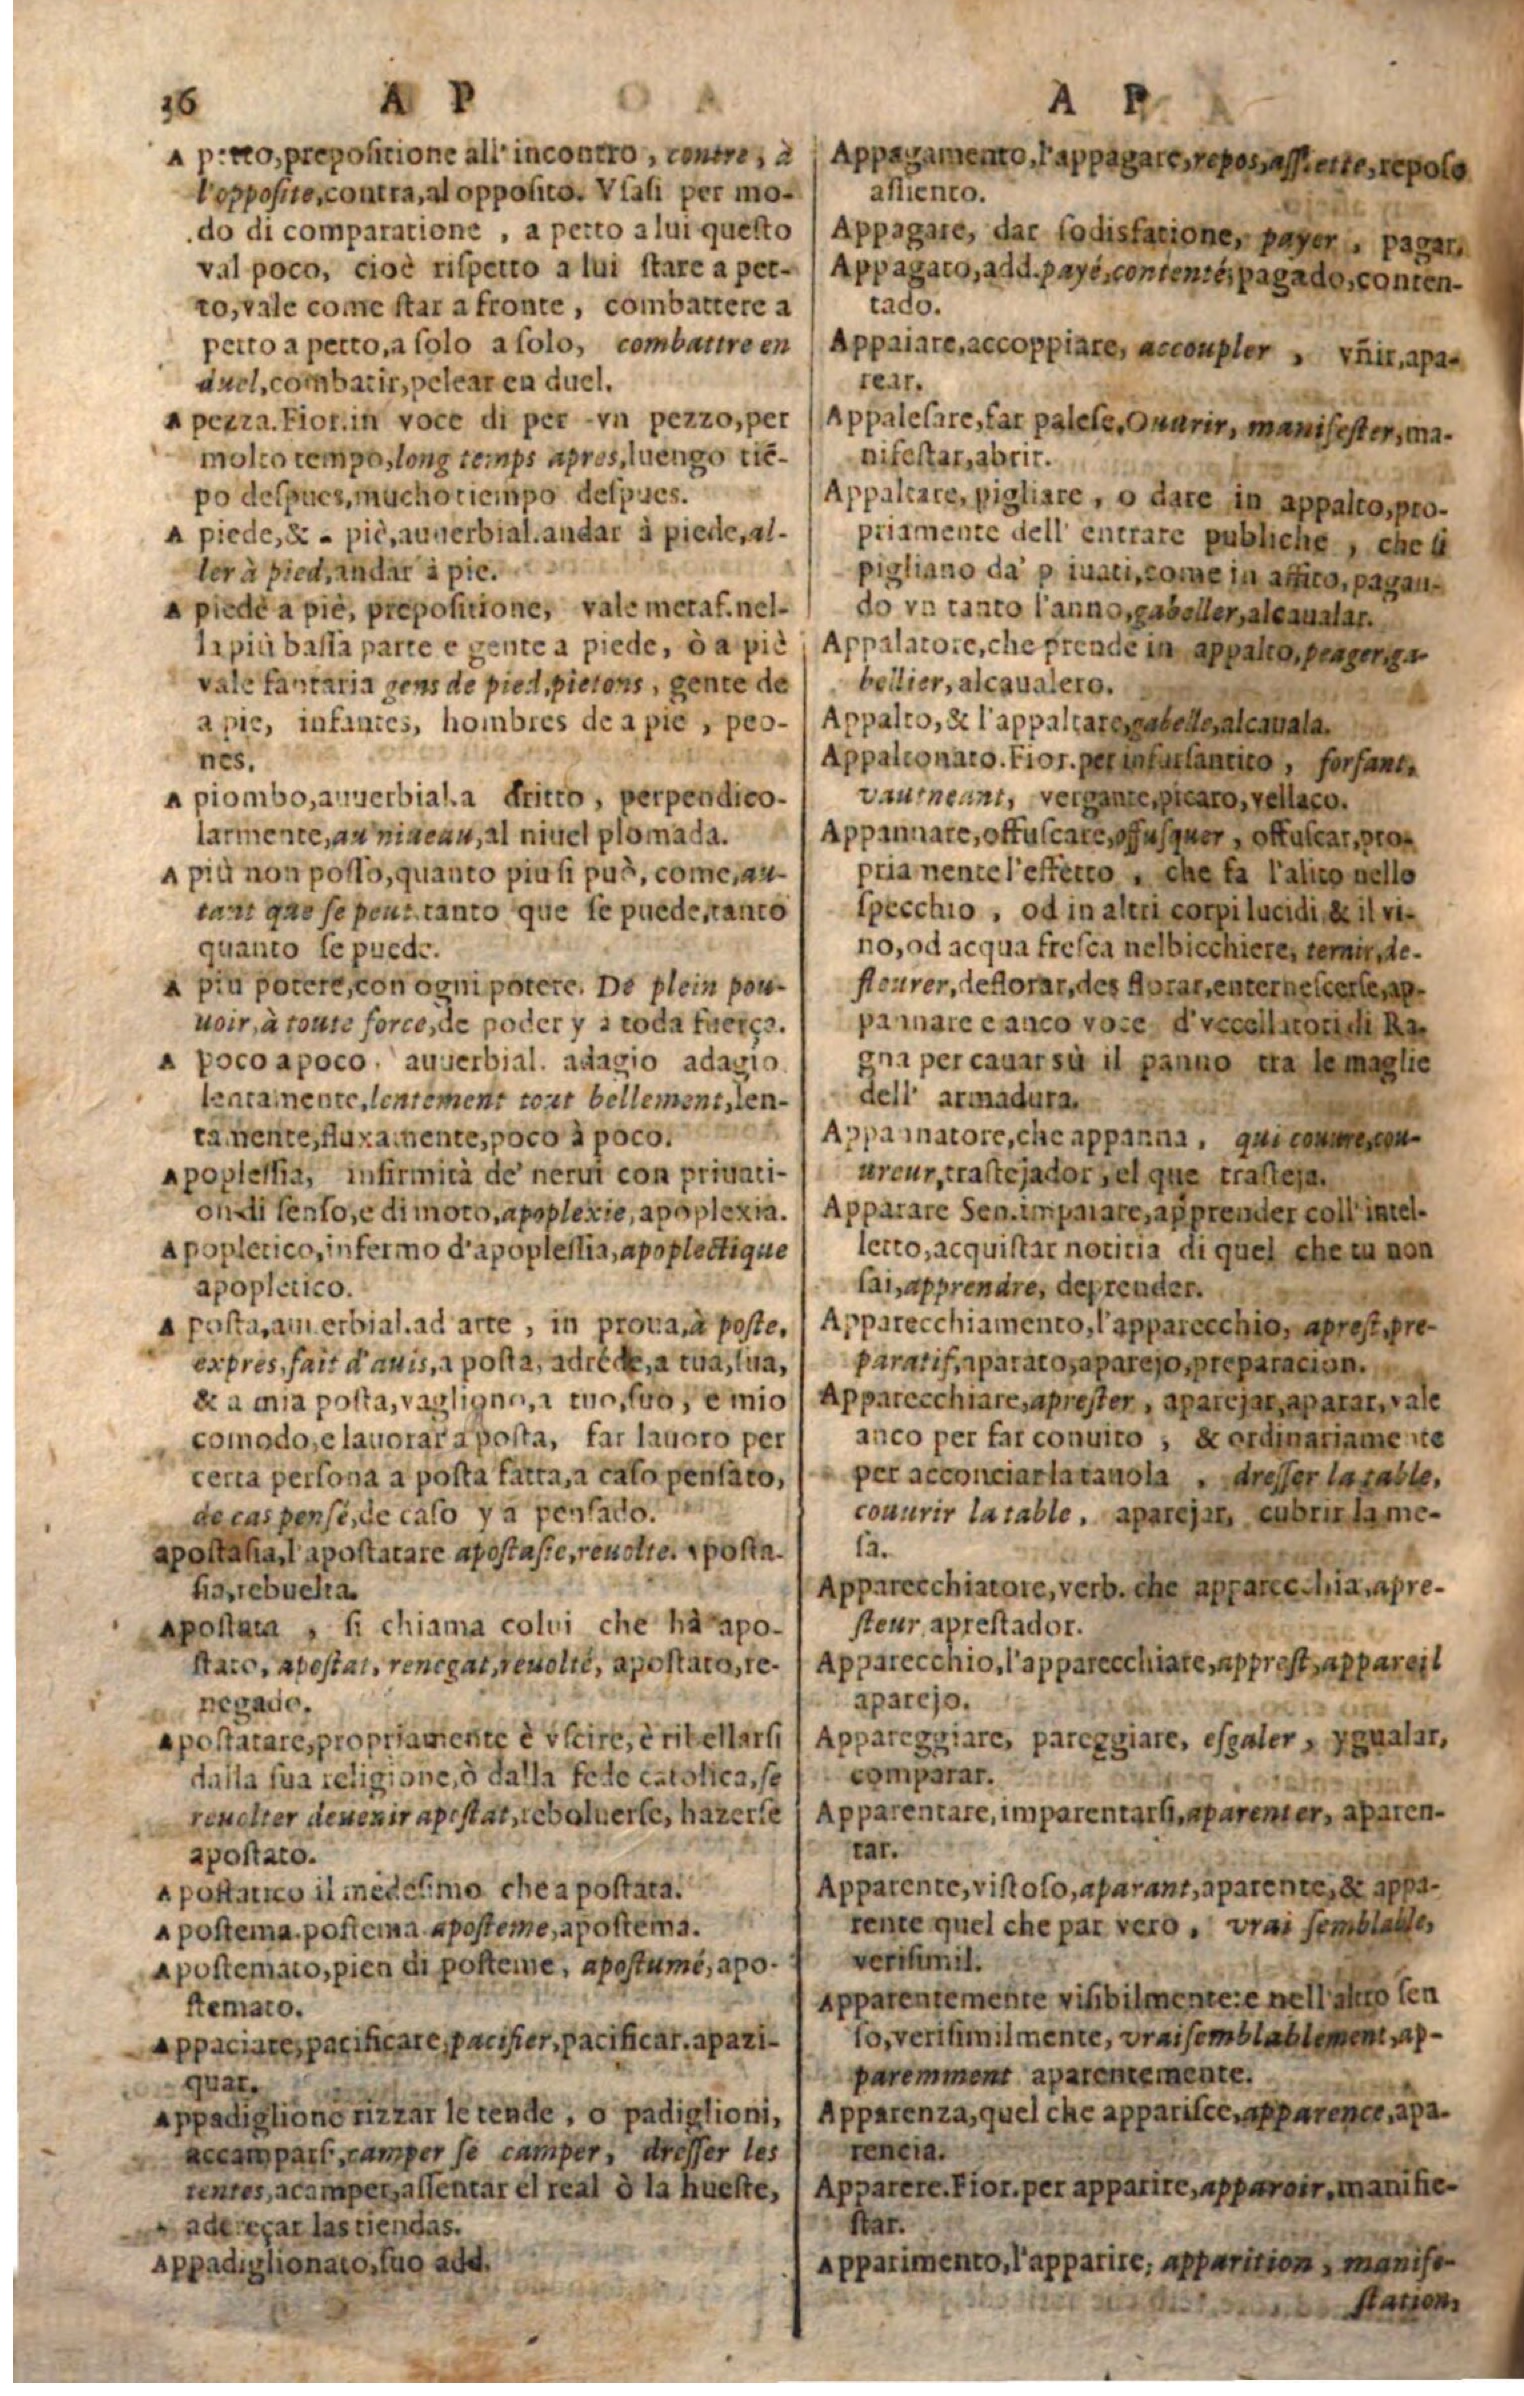 36 A P
A petto, prepositione all' incontro, contre, à
l'opposite, contra, al opposito. Vsasi per mo-
do di comparatione, a petto a lui questo
val poco, cioè rispetto a lui stare a pet-
to, vale come star a fronte, combattere a
petto a petto, a solo a solo, combattre en
duel, combatir, pelear en duel.
A pezza. Fior. in voce di per vn pezzo, per
molto tempo, long temps apres, luengo tiẽ-
po despues, mucho tiempo despues.
A piede, & a piè, auuerbial. andar à piede, al-
ler à pied, andar à pie.
A piede a piè, prepositione, vale metaf. nel-
la più bassa parte e gente a piede, ò a piè
vale fantaria gens de pied, pietons, gente de
a pie, infantes, hombres de a pie, peo-
nes.
A piombo, auuerbial. a dritto, perpendico-
larmente, au niueau, al niuel plomada.
A più non posso, quanto piu si può, come, au-
tant que se peut. tanto que se puede, tanto
quanto se puede.
A piu potere, con ogni potere. De plein pou-
uoir, à toute force, de poder y a toda fuerça.
A poco a poco. auuerbial. adagio adagio
lentamente, lentement tout bellement, len-
tamente, fluxamente, poco à poco.
Apoplessia, infirmità de' nerui con priuati-
on di senso, e di moto, apoplexie, apoplexia.
Apopletico, infermo d'apoplessia, apoplectique
apopletico.
A posta, auuerbial. ad arte, in proua, à poste,
expres, fait d'auis, a posta, adrede, a tua, sua,
& a mia posta, vagliono, a tuo, suo, e mio
comodo, e lauorar a posta, far lauoro per
certa persona a posta fatta, a caso pensato,
de cas pensé, de caso y a pensado.
apostasia, l'apostatare apostasie, reuolte. aposta-
sia, rebuelta.
Apostata, si chiama colui che hà apo-
stato, apostat, renegat, reuolté, apostato, re-
negado.
Apostatare, propriamente è vscire, è ribellarsi
dalla sua religione, ò dalla fede catolica, se
reuolter deuenir apostat, reboluerse, hazerse
apostato.
Apostatico il medesimo che apostata.
Apostema. postema aposteme, apostema.
Apostemato, pien di posteme, apostumé, apo-
stemato.
Appaciare, pacificare, pacifier, pacificar. apazi-
guar.
Appadiglione rizzar le tende, o padiglioni,
accampars. camper se camper, dresser les
tentes, acamper, assentar el real ò la hueste,
adereçar las tiendas.
Appadiglionato, suo add.
A P
Appagamento, l'appagare, repos, assiette, reposo
assiento.
Appagare, dar sodisfatione, payer, pagar.
Appagato, add. payé, contenté, pagado, conten-
tado.
Appaiare, accoppiare, accoupler, vñir, apa-
rear.
Appalesare, far palese. Ouurir, manifester, ma-
nifestar, abrir.
Appaltare, pigliare, o dare in appalto, pro-
priamente dell' entrate publiche, che si
pigliano da' priuati, come in affito, pagan-
do vn tanto l'anno, gabeller, alcaualar.
Appalatore, che prende in appalto, peager, ga-
bellier, alcaualero.
Appalto, & l'appaltare, gabelle, alcauala.
Appaltonato. Fior. per infurfantito, forfant,
vautneant, vergante, picaro, vellaco.
Appannare, offuscare, offusquer, offuscar, pro-
priamente l'effetto, che fa l'alito nello
specchio, od in altri corpi lucidi, & il vi-
no, od acqua fresca nel bicchiere, ternir, de-
fleurer, deflorar, des florar, enternescerse, ap-
pannare e anco voce d'vccellatori di Ra-
gna per cauar sù il panno tra le maglie
dell' armadura.
Appannatore, che appanna, qui couure, cou-
ureur, trastejador, el que trasteja.
Apparare Sen. imparare, apprender coll' intel-
letto, acquistar notitia di quel che tu non
sai, apprendre, deprender.
Apparecchiamento, l'apparecchio, aprest, pre-
paratif, aparato, aparejo, preparacion.
Apparecchiare, aprester, aparejar, aparar, vale
anco per far conuito, & ordinariamente
per acconciar la tauola, dresser la table,
couurir la table, aparejar, cubrir la me-
sa.
Apparecchiatore, verb. che apparecchia, apre-
steur aprestador.
Apparecchio, l'apparecchiare, apprest, appareil
aparejo.
Appareggiare, pareggiare, esgaler, ygualar,
comparar.
Apparentare, imparentarsi, aparenter, aparen-
tar.
Apparente, vistoso, aparant, aparente, & appa-
rente quel che par vero, vrai semblable,
verisimil.
Apparentemente visibilmente: e nell'altro sen
so, verisimilmente, vraisemblablement, ap-
paremment aparentemente.
Apparenza, quel che apparisce, apparence, apa-
rencia.
Apparere. Fior. per apparire, apparoir, manifie-
star.
Apparimento, l'apparire, apparition, manife-
station,